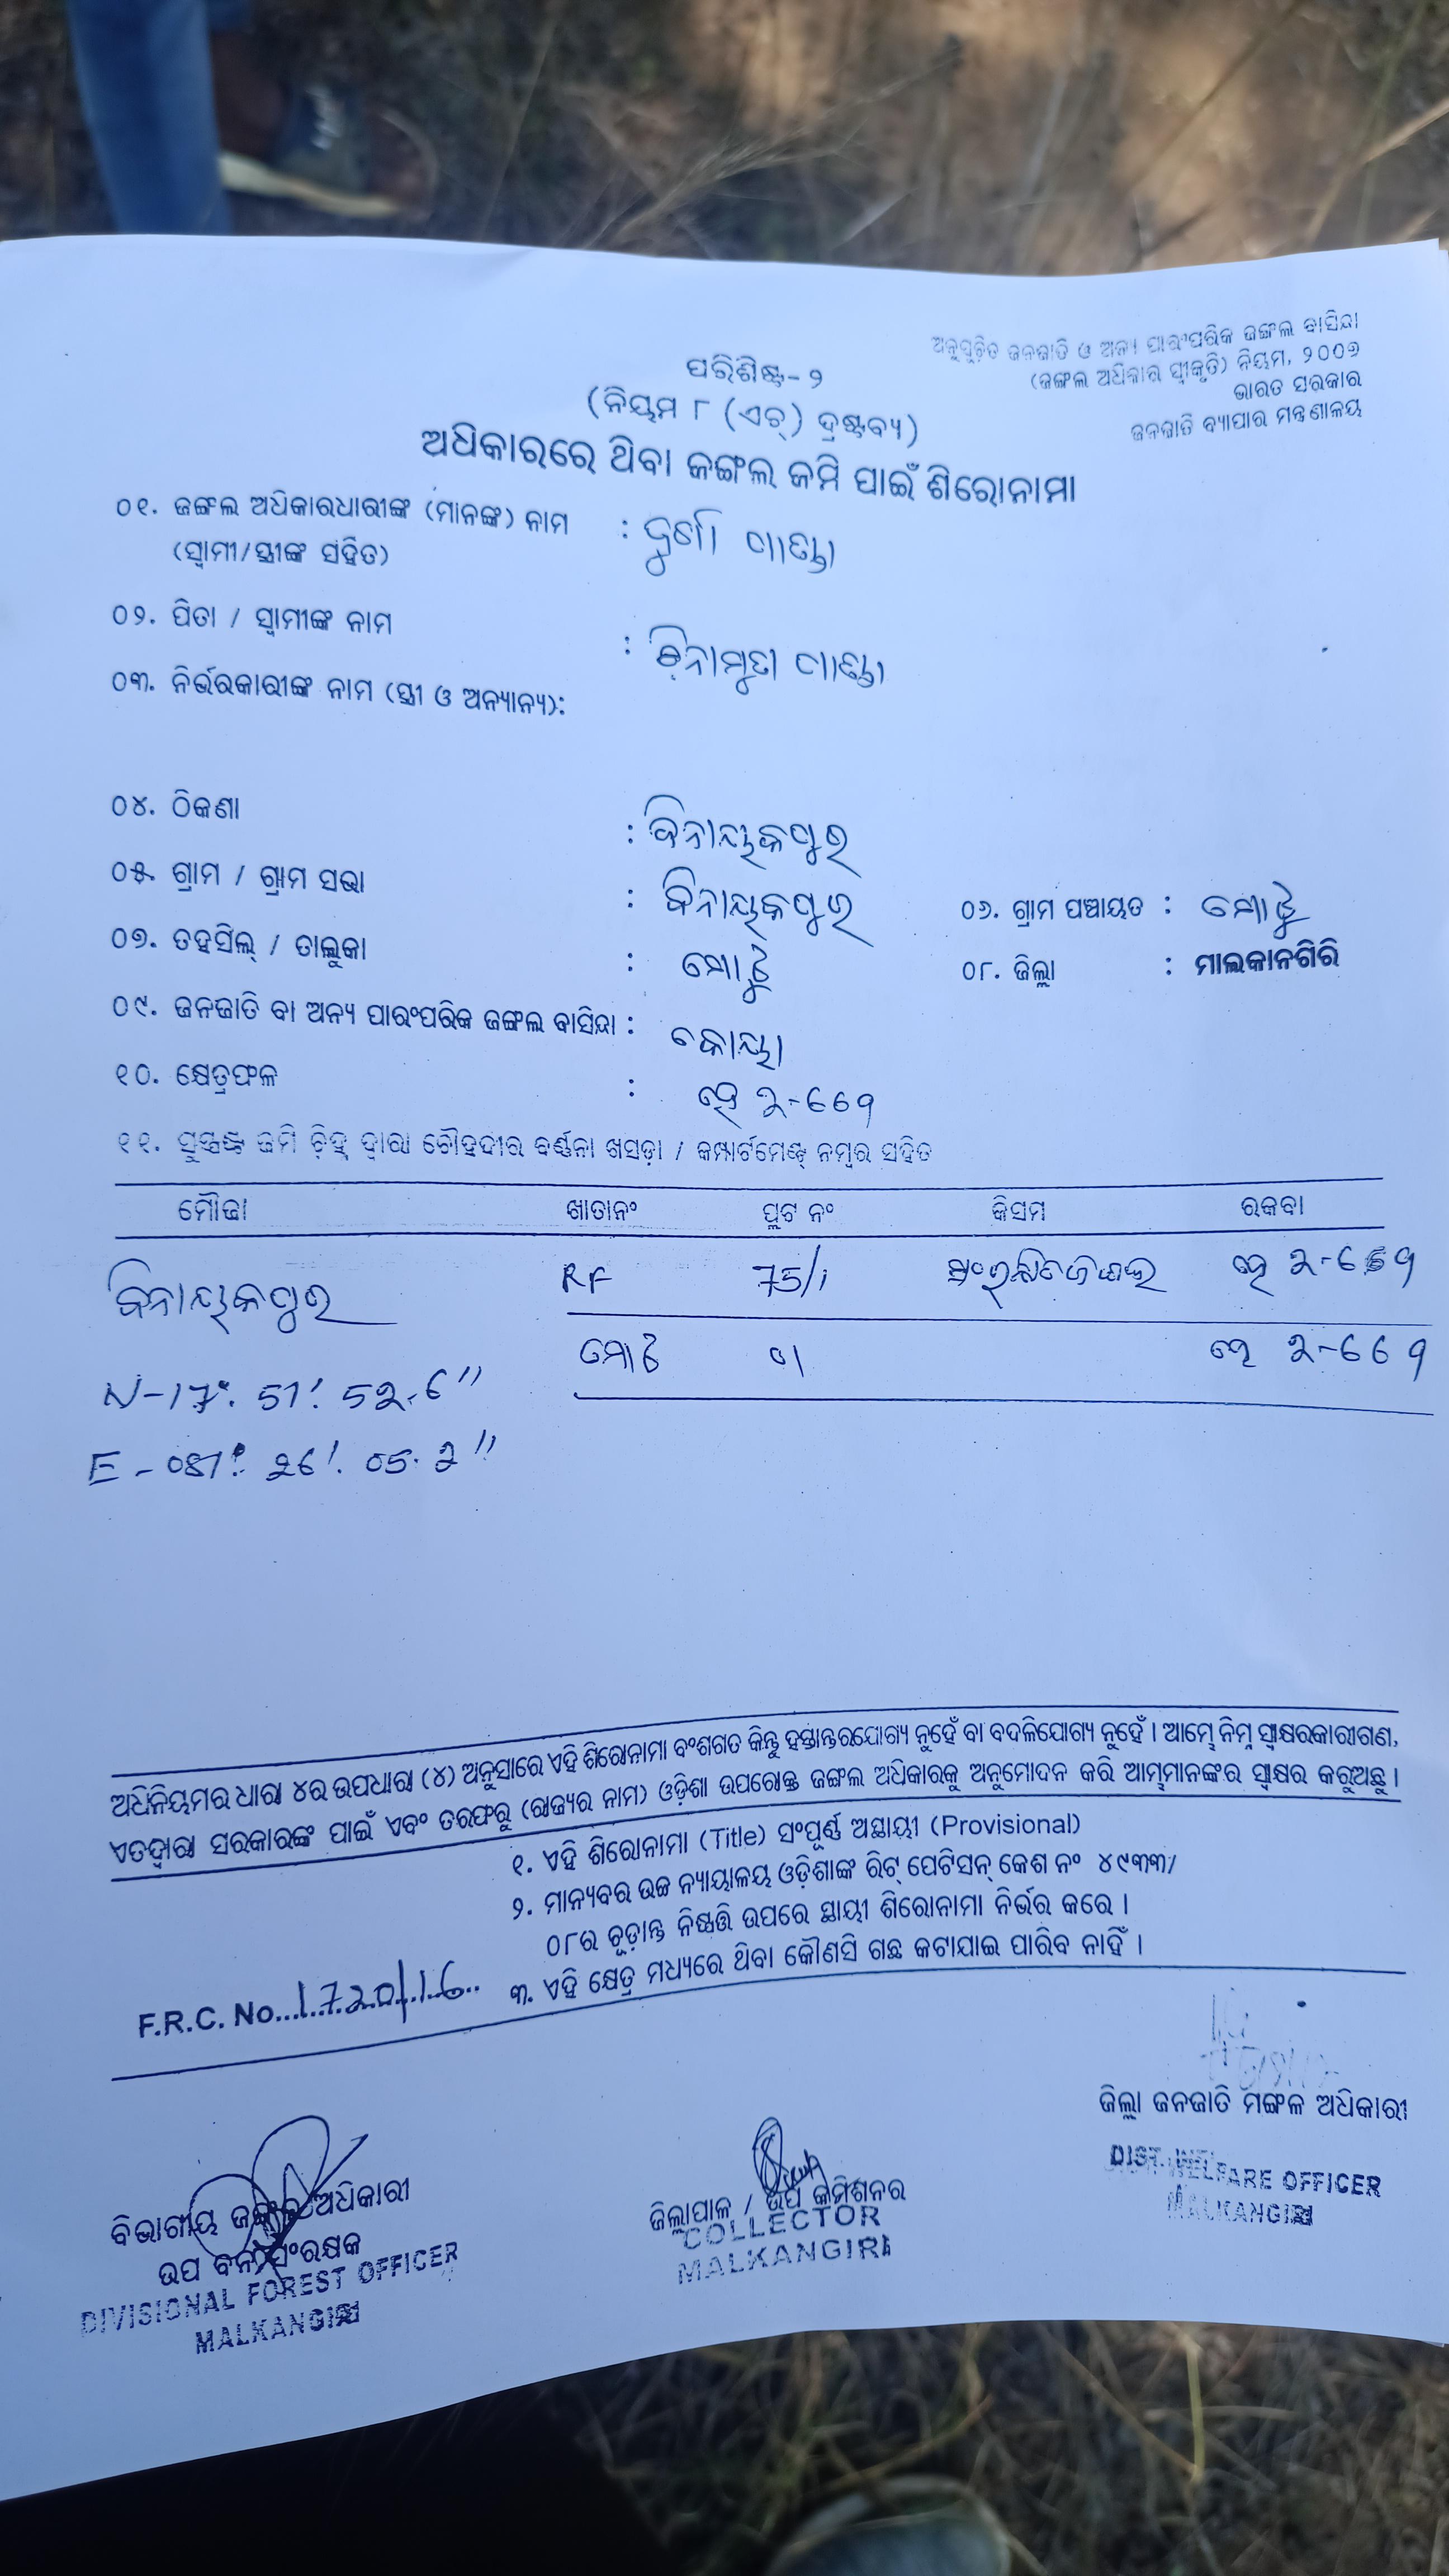 ଅନୁସୂଚିତ ଜନଜାତି ଓ ଅନ୍ୟ ପାରଂପରିକ ଜଙ୍ଗଲ ବାସିନ୍ଦା
(ଜଙ୍ଗଲ ଅଧିକାର ସ୍ୱୀକୃତି) ନିୟମ, ୨୦୦୭
ଭାରତ ସରକାର
ଜନଜାତି ବ୍ୟାପାର ମନ୍ତ୍ରଣାଳୟ
ପରିଶିଷ୍ଟ-୨
(ନିୟମ ୮ (ଏଚ୍) ଦ୍ରଷ୍ଟବ୍ୟ)
ଅଧିକାରରେ ଥିବା ଜଙ୍ଗଲ ଜମି ପାଇଁ ଶିରୋନାମା
୦୧. ଜଙ୍ଗଲ ଅଧିକାରଧାରୀଙ୍କ (ମାନଙ୍କ) ନାମ :
(ସ୍ୱାମୀ/ସ୍ତ୍ରୀଙ୍କ ସହିତ)
୦୨. ପିତା / ସ୍ୱାମୀଙ୍କ ନାମ :
୦୩. ନିର୍ଭରକାରୀଙ୍କ ନାମ (ସ୍ତ୍ରୀ ଓ ଅନ୍ୟାନ୍ୟ):
୦୪. ଠିକଣା : ବିନାୟକପୁର
୦୫. ଗ୍ରାମ / ଗ୍ରାମ ସଭା : ବିନାୟକପୁର ୦୬. ଗ୍ରାମ ପଞ୍ଚାୟତ : ମୋଟୁ
୦୭. ତହସିଲ୍ / ତାଲୁକା : ମୋଟୁ ୦୮. ଜିଲ୍ଲା : ମାଲକାନଗିରି
୦୯. ଜନଜାତି ବା ଅନ୍ୟ ପାରଂପରିକ ଜଙ୍ଗଲ ବାସିନ୍ଦା : କୋୟା
୧୦. କ୍ଷେତ୍ରଫଳ : ହେ
୧୧. ସୁସ୍ପଷ୍ଟ ଜମି ଚିହ୍ନ ଦ୍ୱାରା ଚୌହଦୀର ବର୍ଣ୍ଣନା ଖସଡ଼ା / କମ୍ପାର୍ଟମେଣ୍ଟ୍ ନମ୍ବର ସହିତ
ମୌଜା ଖାତାନଂ ପ୍ଲଟ ନଂ କିସମ ରକବା
ବିନାୟକପୁର RF 75/1 ହେ
ମୋଟ ୦୧ ହେ
N-17°. 51'. 52.6"
E-081°. 26'. 05.2"
ଅଧିନିୟମର ଧାରା ୪ର ଉପଧାରା (୪) ଅନୁସାରେ ଏହି ଶିରୋନାମା ବଂଶଗତ କିନ୍ତୁ ହସ୍ତାନ୍ତରଯୋଗ୍ୟ ନୁହେଁ ବା ବଦଳିଯୋଗ୍ୟ ନୁହେଁ । ଆମ୍ଭେ ନିମ୍ନ ସ୍ୱାକ୍ଷରକାରୀଗଣ,
ଏତଦ୍ୱାରା ସରକାରଙ୍କ ପାଇଁ ଏବଂ ତରଫରୁ (ରାଜ୍ୟର ନାମ) ଓଡ଼ିଶା ଉପରୋକ୍ତ ଜଙ୍ଗଲ ଅଧିକାରକୁ ଅନୁମୋଦନ କରି ଆମ୍ଭମାନଙ୍କର ସ୍ୱାକ୍ଷର କରୁଅଛୁ ।
୧. ଏହି ଶିରୋନାମା (Title) ସଂପୂର୍ଣ୍ଣ ଅସ୍ଥାୟୀ (Provisional)
୨. ମାନ୍ୟବର ଉଚ୍ଚ ନ୍ୟାୟାଳୟ ଓଡ଼ିଶାଙ୍କ ରିଟ୍ ପେଟିସନ୍ କେଶ ନଂ ୪୯୩୩/
୦୮ର ଚୂଡ଼ାନ୍ତ ନିଷ୍ପତ୍ତି ଉପରେ ସ୍ଥାୟୀ ଶିରୋନାମା ନିର୍ଭର କରେ ।
୩. ଏହି କ୍ଷେତ୍ର ମଧ୍ୟରେ ଥିବା କୌଣସି ଗଛ କଟାଯାଇ ପାରିବ ନାହିଁ ।
F.R.C. No...1720/16..
ଜିଲ୍ଲା ଜନଜାତି ମଙ୍ଗଳ ଅଧିକାରୀ
DIST. WELFARE OFFICER
MALKANGIRI
ଜିଲ୍ଲାପାଳ / ଉପ କମିଶନର
COLLECTOR
MALKANGIRI
ବିଭାଗୀୟ ଜଙ୍ଗଲ ଅଧିକାରୀ
ଉପ ବନ ସଂରକ୍ଷକ
DIVISIONAL FOREST OFFICER
MALKANGIRI